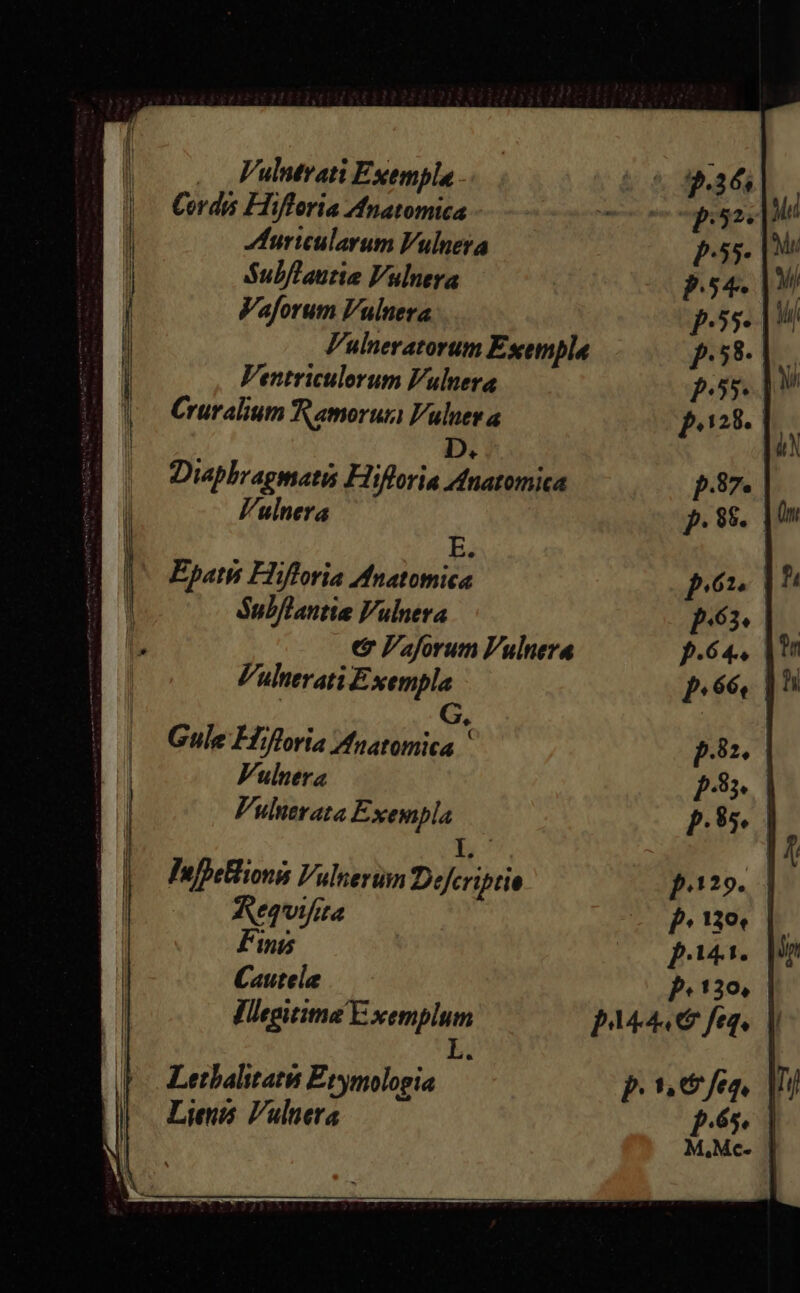 Vulnerati Exempla p.36.
Cordis Hiſtoria Anatomica p.52.
Auricularum Vulnera p.55.
Subſtantiæ Vulnera p.54.
Vaſorum Vulnera p.55.
Vulneratorum Exempla p.58.
Ventriculorum Vulnera p.55.
Cruralium Ramorum Vulnera p.128.
D.
Diaphragmatis Hiſtoria Anatomica p.87.
Vulnera p.88.
E.
Epatis Hiſtoria Anatomica p.62.
Subſtantiæ Vulnera p.63.
& Vaſorum Vulnera p.64.
Vulnerati Exempla p.66.
G.
Gulæ Hiſtoria Anatomica p.82.
Vulnera p.83.
Vulnerata Exempla p.85.
I.
Inſpectionis Vulnerum Deſcriptio p.129.
Requiſita p.130.
Finis p.141.
Cautelæ p.130.
Illegitimæ Exemplum p.144.& ſeq.
L.
Lethalitatis Etymologia p.1.& ſeq.
Lienis Vulnera p.65.
M.Me-